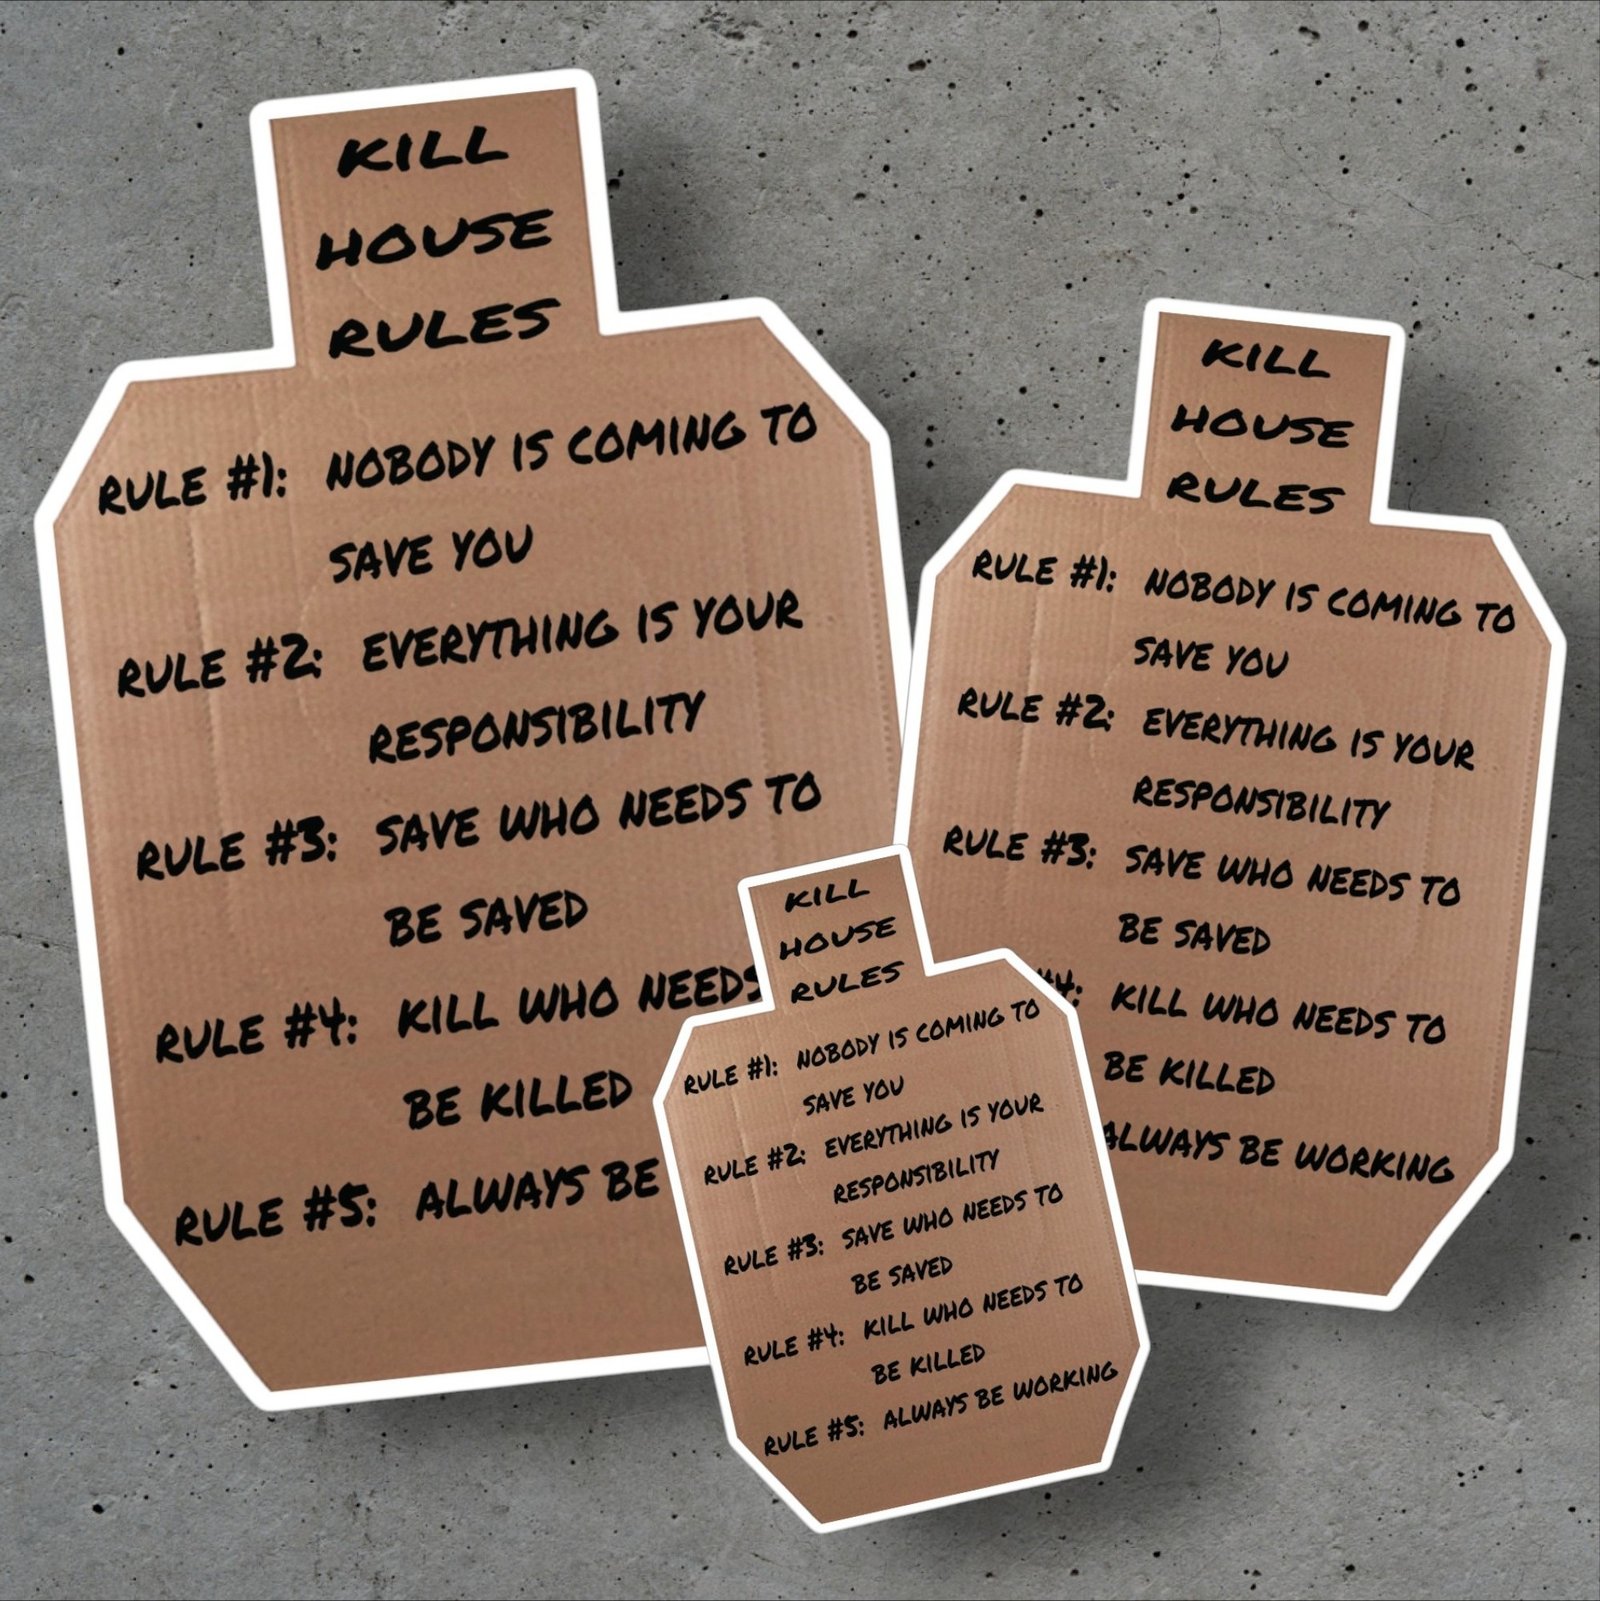 KILL
HOUSE
RULES
RULE #1: NOBODY IS COMING TO
SAVE YOU
RULE #2: EVERYTHING IS YOUR
RESPONSIBILITY
RULE #3: SAVE WHO NEEDS TO
BE SAVED
RULE #4: KILL WHO NEEDS
BE KILLED
RULE #5: ALWAYS BE
KILL
HOUSE
RULES
RULE #1: NOBODY IS COMING TO
SAVE YOU
RULE #2: EVERYTHING IS YOUR
RESPONSIBILITY
RULE #3: SAVE WHO NEEDS TO
BE SAVED
#4: KILL WHO NEEDS TO
BE KILLED
ALWAYS BE WORKING
KILL
HOUSE
RULES
RULE #1: NOBODY IS COMING TO
SAVE YOU
RULE #2: EVERYTHING IS YOUR
RESPONSIBILITY
RULE #3: SAVE WHO NEEDS TO
BE SAVED
RULE #4: KILL WHO NEEDS TO
BE KILLED
RULE #5: ALWAYS BE WORKING